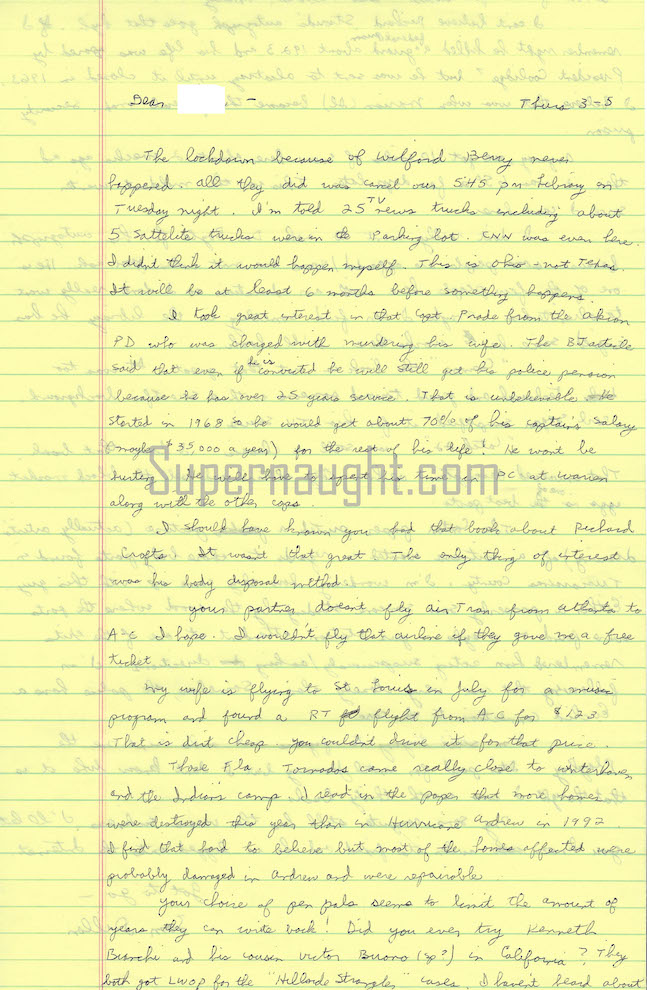 Dear - Thurs 3-5
The lockdown because of Wilford Berry never
happened. All they did was cancel our 545 pm Library on
Tuesday night. I'm told 25 TV news trucks including about
5 Sattelite trucks were in Parking lot. CNN was even here.
I didn't think it would happen myself. This is Ohio - not Texas.
It will be at least 6 months before something happens.
I took great interest in that Capt. Prade from the Akron
PD who was charged with murdering his wife. The BJ article
said that even if he is convicted he will still get his police pension
because he has over 25 years service. That is unbelievable. He
started in 1968 so he would get about 70% of his captains salary
(maybe $35,000 a year) for the rest of his life! He wont be
hurting. He will have to spend his time in PC at Warren
along with the other cops.
Supernaught.com
I should have known you had that book about Richard
Crafts. It wasn't that great. The only thing of interest
was his body disposal method.
Your partner doesn't fly air Tran from Atlanta to
A-C I hope. I wouldn't fly that airline if they gave me a free
ticket.
My wife is flying to St Louis in July for a
program and found a RT flight from A-C for $123
That is dirt cheap. You couldn't drive it for that price.
Those Fla Tornados came really close to winterhaven
and the Indians camp. I read in the paper that more homes
were destroyed this year than in Hurricane Andrew in 1992
I find that hard to believe but most of the homes affected were
probably damaged in Andrew and were repairable.
Your choice of pen pals seems to limit the amount of
years they can write back! Did you ever try Kenneth
Bianchi and his cousin Victor Buono (sp?) in California? They
both got LWOP for the "Hillside Strangler" cases. I haven't heard about